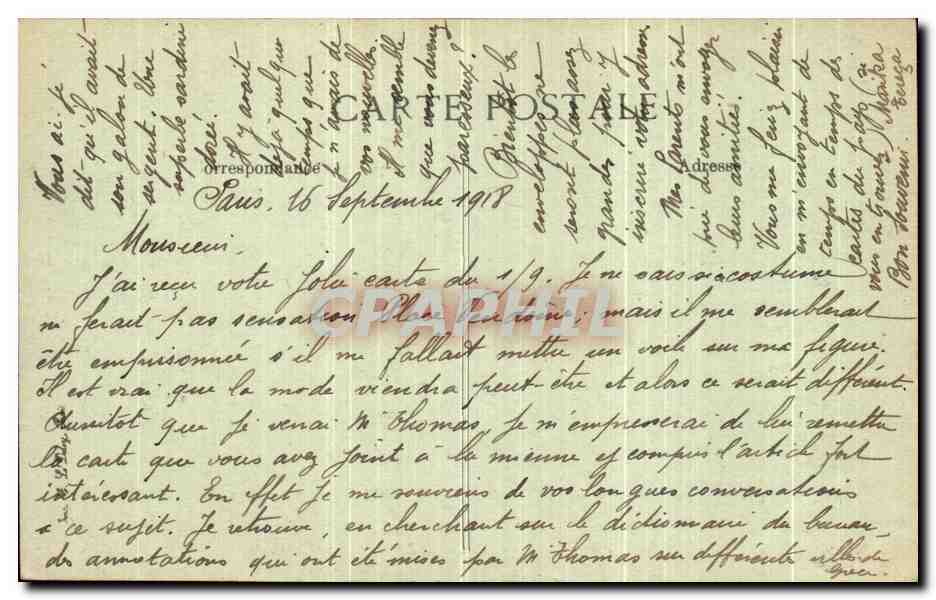 CARTE POSTALE
Correspondance
Adresse
Paris, 16 Septembre 1918
Monsieur,
J'ai reçu votre jolie carte du 1/9. Je ne sais si ce costume
ne ferait pas sensation Place Vendôme; mais il me semblerait
être emprisonnée s'il me fallait mettre un voile sur ma figure.
Il est vrai que la mode viendra peut-être et alors ce serait différent.
Aussitôt que je verrai Mr Thomas, je m'empresserai de lui remettre
la carte que vous avez joint à la mienne y compris l'article fort
intéressant. En effet je me souviens de vos longues conversations
à ce sujet. Je retrouve, en cherchant sur le dictionnaire du bureau
des annotations qui ont été mises par Mr Thomas sur différente villes de
Grèce.
Vous ai-je
dit qu'il avait
son galon de
sergent. Une
superbe sardine
dorée.
Il y avait
déjà quelque
temps que
je n'avais de
vos nouvelles.
Il me semble
que vous devenez
paresseux?
Bientôt les
enveloppes ne
seront plus assez
grandes pour y
inscrire votre adresse
Mes Parents m'ont
prié de vous envoyer
leurs amitiés.
Vous me ferez plaisir
en m'envoyant de
temps en temps des
cartes du pays (si
vous en trouvez)
Bon souvenir
CPAPHIL